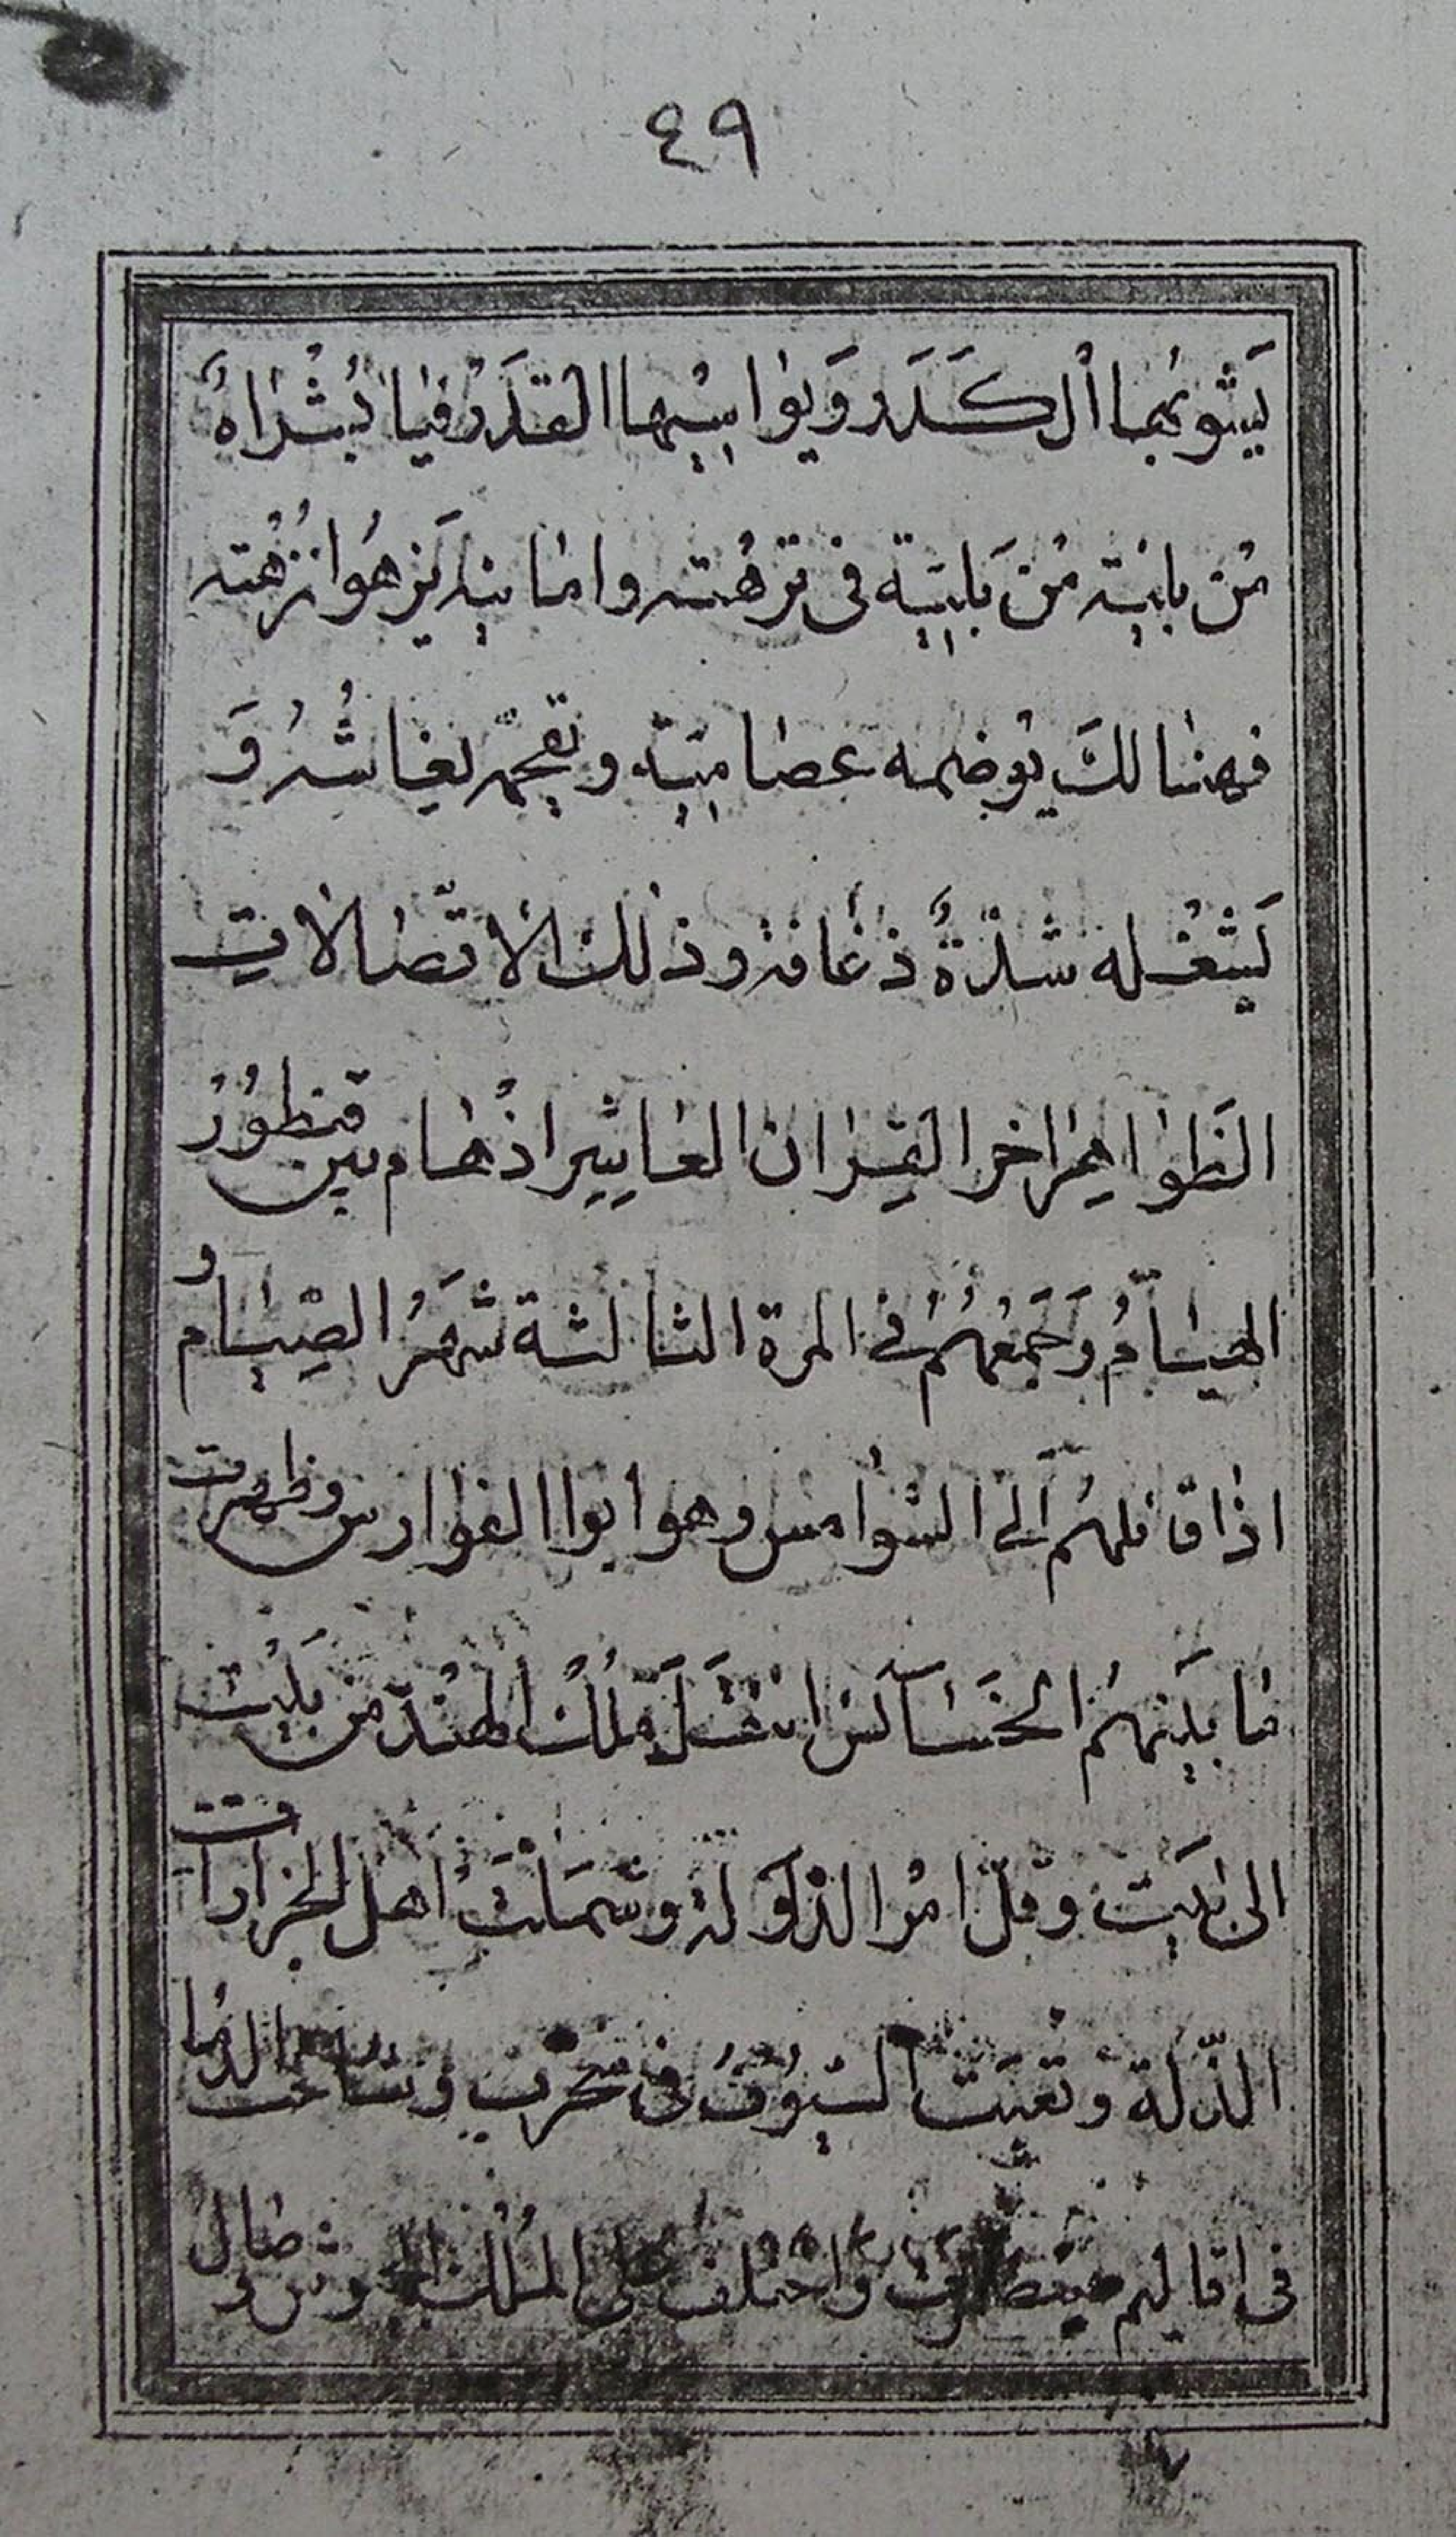 ٤٩
يَشوبُها الكَدَر وَيواسِيها القدَرُ فيا بُشراهُ
مُن بانيته مُن بَليتِه في ترهُته واماينه يَزهُوا نزهُته
فهنالكَ يوضمه عصاميته و بغاشُرُ وَ
يَشغُله شدّةٌ ذعافه وذلك الاتصالات
النَظواهِر اخر القِران العاشِر اذ هام بين قنطُورُ
الهيَامُ وَجَمعُهُمُ في المرة الثالثة شَهَرُ الصِيام و
اذاق فلهُم الى الشوامس وهو ابوا الفوارس وظهرت
ما بَينهُم الخسَآئس انتقَلَ مُلكُ الهنُد من بَيُت
الى بَيت وقلّ امُر الدَولة وشَملتَ اهل الجزارات
الذّلة وتعبَت السيُوفُ في حَرب وساحت الدُما
في اقاليم واختلف على المُلك الجيوش و طال